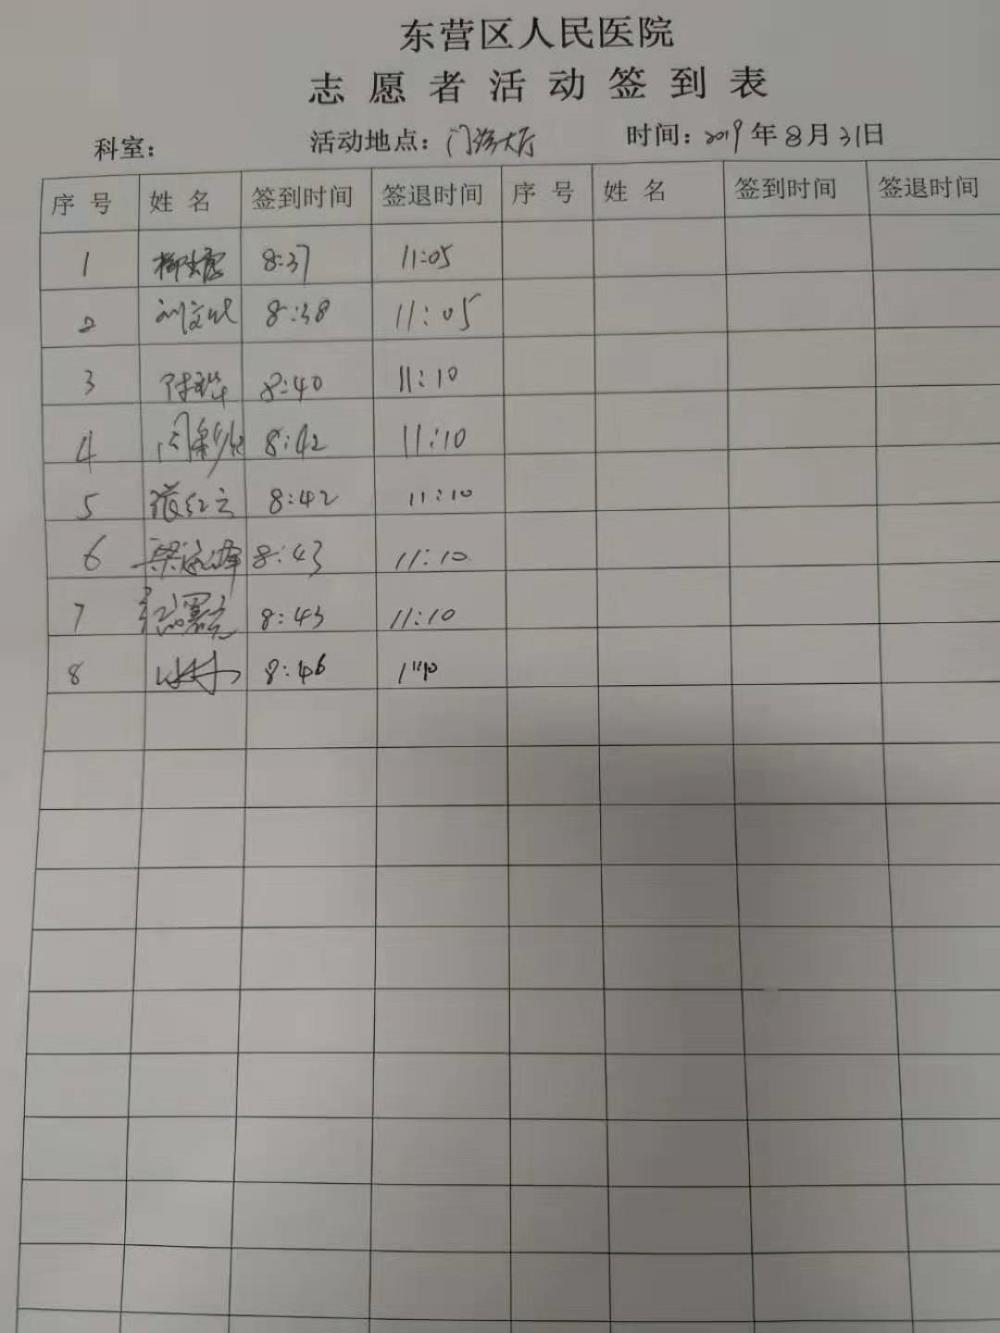 东营区人民医院
志愿者活动签到表
科室： 活动地点：门诊大厅 时间：2019年8月31日
序号 姓名 签到时间 签退时间 序号 姓名 签到时间 签退时间
1 8:37 11:05
2 刘文 8:38 11:05
3 8:40 11:10
4 8:42 11:10
5 张红云 8:42 11:10
6 梁 8:43 11:10
7 8:43 11:10
8 8:46 11:10